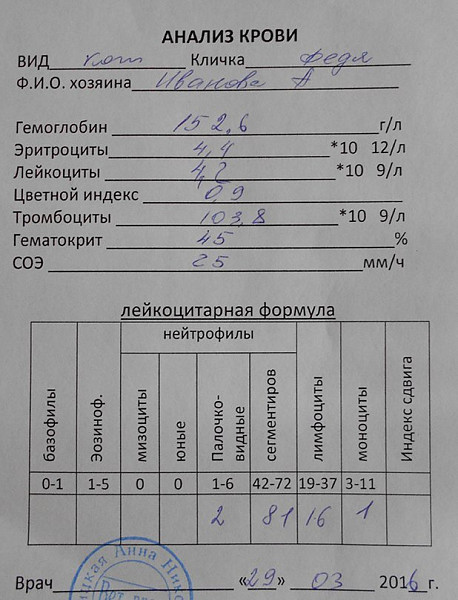 АНАЛИЗ КРОВИ
ВИД кот Кличка Федя
Ф.И.О. хозяина Иванова А
Гемоглобин 152,6 г/л
Эритроциты 4,4 *10 12/л
Лейкоциты 4,2 *10 9/л
Цветной индекс 0,9
Тромбоциты 103,8 *10 9/л
Гематокрит 45 %
СОЭ 25 мм/ч
лейкоцитарная формула
нейтрофилы
базофилы Эозиноф. мизоциты юные Палочко-видные сегментиров лимфоциты моноциты Индекс сдвига
0-1 1-5 0 0 1-6 42-72 19-37 3-11
2 81 16 1
Врач «29» 03 2016 г.
Анна